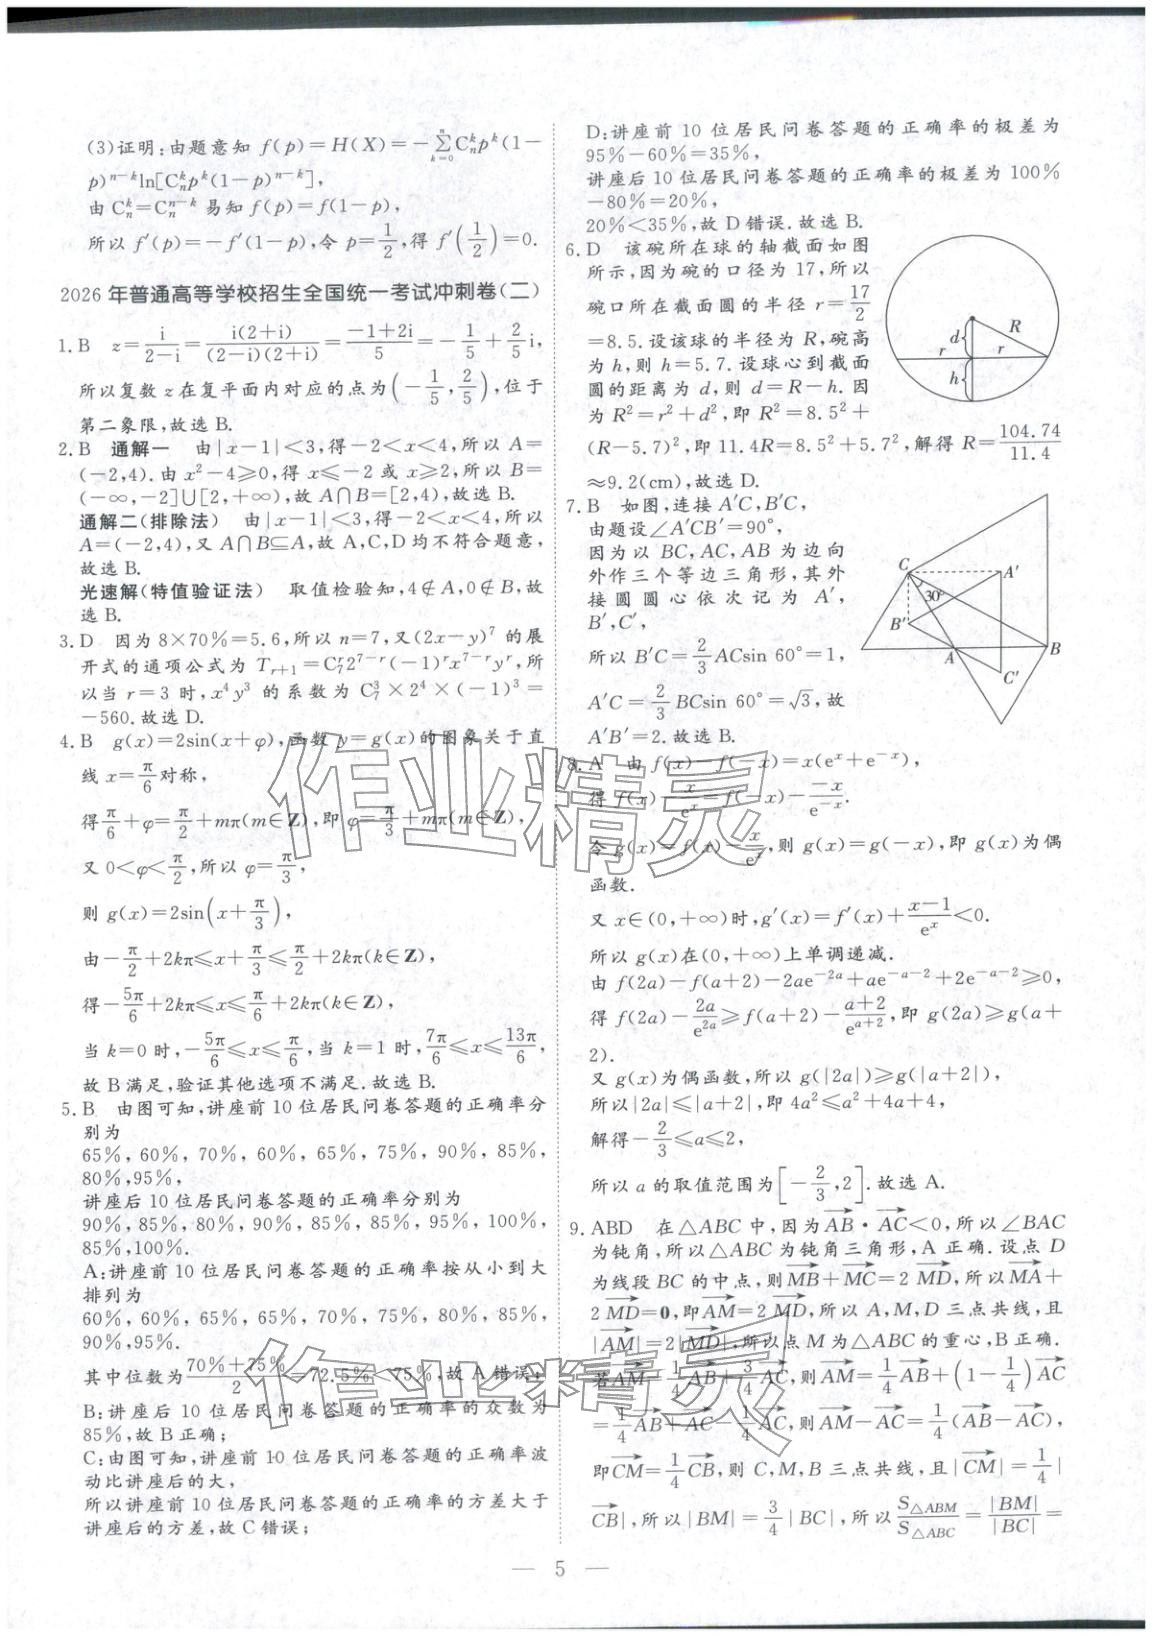 (3)证明:由题意知 f(p)=H(X)=-∑_{k=0}^{n}C_n^k p^k(1-
p)^{n-k}ln[C_n^k p^k(1-p)^{n-k}],
由 C_n^k=C_n^{n-k} 易知 f(p)=f(1-p),
所以 f′(p)=-f′(1-p),令 p=1/2,得 f′(1/2)=0.
2026 年普通高等学校招生全国统一考试冲刺卷(二)
1.B z=i/(2-i)=i(2+i)/((2-i)(2+i))=(-1+2i)/5=-1/5+2/5 i,
所以复数 z 在复平面内对应的点为(-1/5,2/5),位于
第二象限,故选 B.
2.B 通解一 由|x-1|<3,得-2<x<4,所以 A=
(-2,4).由 x²-4≥0,得 x≤-2 或 x≥2,所以 B=
(-∞,-2]∪[2,+∞),故 A∩B=[2,4),故选 B.
通解二(排除法) 由|x-1|<3,得-2<x<4,所以
A=(-2,4),又 A∩B⊆A,故 A,C,D 均不符合题意,
故选 B.
光速解(特值验证法) 取值检验知,4∉A,0∉B,故
选 B.
3.D 因为 8×70%=5.6,所以 n=7,又(2x-y)⁷ 的展
开式的通项公式为 T_{r+1}=C_7^r 2^{7-r}(-1)^r x^{7-r}y^r,所
以当 r=3 时,x⁴y³ 的系数为 C_7^3×2⁴×(-1)³=
-560.故选 D.
4.B g(x)=2sin(x+φ),函数 y=g(x)的图象关于直
线 x=π/6对称,
得π/6+φ=π/2+mπ(m∈Z),即 φ=π/3+mπ(m∈Z),
又 0<φ<π/2,所以 φ=π/3,
则 g(x)=2sin(x+π/3),
由-π/2+2kπ≤x+π/3≤π/2+2kπ(k∈Z),
得-5π/6+2kπ≤x≤π/6+2kπ(k∈Z),
当 k=0 时,-5π/6≤x≤π/6,当 k=1 时,7π/6≤x≤13π/6,
故 B 满足,验证其他选项不满足.故选 B.
5.B 由图可知,讲座前 10 位居民问卷答题的正确率分
别为
65%,60%,70%,60%,65%,75%,90%,85%,
80%,95%,
讲座后 10 位居民问卷答题的正确率分别为
90%,85%,80%,90%,85%,85%,95%,100%,
85%,100%.
A:讲座前 10 位居民问卷答题的正确率按从小到大
排列为
60%,60%,65%,65%,70%,75%,80%,85%,
90%,95%.
其中位数为(70%+75%)/2=72.5%<75%,故 A 错误;
B:讲座后 10 位居民问卷答题的正确率的众数为
85%,故 B 正确;
C:由图可知,讲座前 10 位居民问卷答题的正确率波
动比讲座后的大,
所以讲座前 10 位居民问卷答题的正确率的方差大于
讲座后的方差,故 C 错误;
D:讲座前 10 位居民问卷答题的正确率的极差为
95%-60%=35%,
讲座后 10 位居民问卷答题的正确率的极差为 100%
-80%=20%,
20%<35%,故 D 错误.故选 B.
6.D 该碗所在球的轴截面如图
所示,因为碗的口径为 17,所以
碗口所在截面圆的半径 r=17/2
=8.5.设该球的半径为 R,碗高
为 h,则 h=5.7.设球心到截面
圆的距离为 d,则 d=R-h.因
为 R²=r²+d²,即 R²=8.5²+
(R-5.7)²,即 11.4R=8.5²+5.7²,解得 R=104.74/11.4
≈9.2(cm),故选 D.
d
R
r
r
h
7.B 如图,连接 A′C,B′C,
由题设∠A′CB′=90°,
因为以 BC,AC,AB 为边向
外作三个等边三角形,其外
接圆圆心依次记为 A′,
B′,C′,
所以 B′C=2/3 ACsin 60°=1,
A′C=2/3 BCsin 60°=√3,故
A′B′=2.故选 B.
C
A′
30°
B′
A
B
C′
8.A 由 f(x)-f(-x)=x(eˣ+e⁻ˣ),
得 f(x)-x/eˣ=f(-x)-(-x)/e⁻ˣ.
令 g(x)=f(x)-x/eˣ,则 g(x)=g(-x),即 g(x)为偶
函数.
又 x∈(0,+∞)时,g′(x)=f′(x)+(x-1)/eˣ<0.
所以 g(x)在(0,+∞)上单调递减.
由 f(2a)-f(a+2)-2ae^{-2a}+ae^{-a-2}+2e^{-a-2}≥0,
得 f(2a)-2a/e^{2a}≥f(a+2)-(a+2)/e^{a+2},即 g(2a)≥g(a+
2).
又 g(x)为偶函数,所以 g(|2a|)≥g(|a+2|),
所以|2a|≤|a+2|,即 4a²≤a²+4a+4,
解得-2/3≤a≤2,
所以 a 的取值范围为[-2/3,2].故选 A.
9.ABD 在△ABC 中,因为AB→·AC→<0,所以∠BAC
为钝角,所以△ABC 为钝角三角形,A 正确.设点 D
为线段 BC 的中点,则MB→+MC→=2 MD→,所以MA→+
2 MD→=0,即AM→=2 MD→,所以 A,M,D 三点共线,且
|AM→|=2|MD→|,所以点 M 为△ABC 的重心,B 正确.
若AM→=1/4 AB→+3/4 AC→,则AM→=1/4 AB→+(1-1/4)AC→
=1/4 AB→+AC→-1/4 AC→,则AM→-AC→=1/4(AB→-AC→),
即CM→=1/4 CB→,则 C,M,B 三点共线,且|CM→|=1/4|
CB→|,所以|BM|=3/4|BC|,所以S△ABM/S△ABC=|BM|/|BC|=
— 5 —
作业精灵
作业精灵